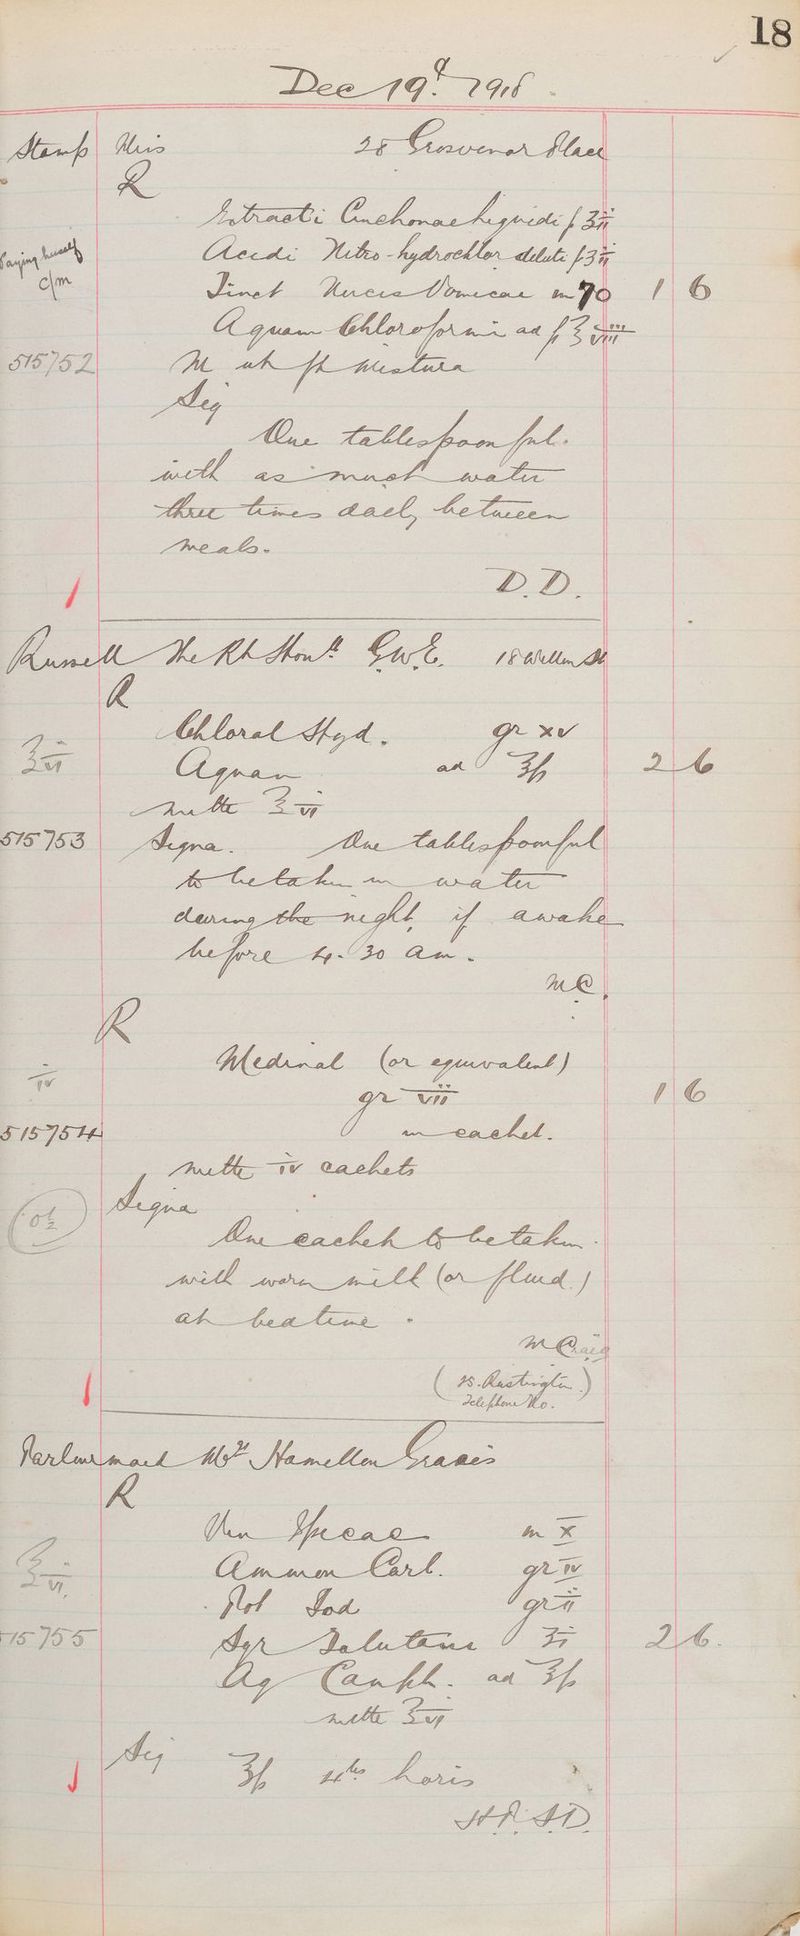 18
Dec 19th 1918
Stamp Miss 28 Grosvenor Place
R
Extracti Cinchonae liquidi f ʒii
Acidi Nitro-hydrochlor dilute f ʒii
Paying herself
c/m
Tinct Nucis Vomicae m 70 1 6
Aquam Chloroformi ad f ℥viii
515752 M ut ft mistura
Sig
One tablespoonful
with as much water
three times daily between
meals.
D.D.
Russell The Rt Honble G.W.E. 18 Wilton St
R
Chloral Hyd. gr xv
℥vi Aquam ad ℥ß 2 6
mitte ℥vi
515753 Signa. One tablespoonful
to be taken in water
during the night, if awake
before 4.30 am.
MC.
R
Medinal (or equivalent)
iv gr vii 1 6
515754 in cachet.
mitte iv cachets
Signa
One cachet to be taken
with warm milk (or fluid.)
at bedtime.
M Craig
Telephone No.
Parlourmaid Mrs Hamilton
R
Vin Ipecac m x
℥vi. Ammon Carb. gr iv
Pot Iod gr ii
515755 Syr Tolutani ʒi 2 6.
Aq Camph. ad ℥ß
mitte ℥vi
Sig ℥ß 4tis horis
H.P.S.D.